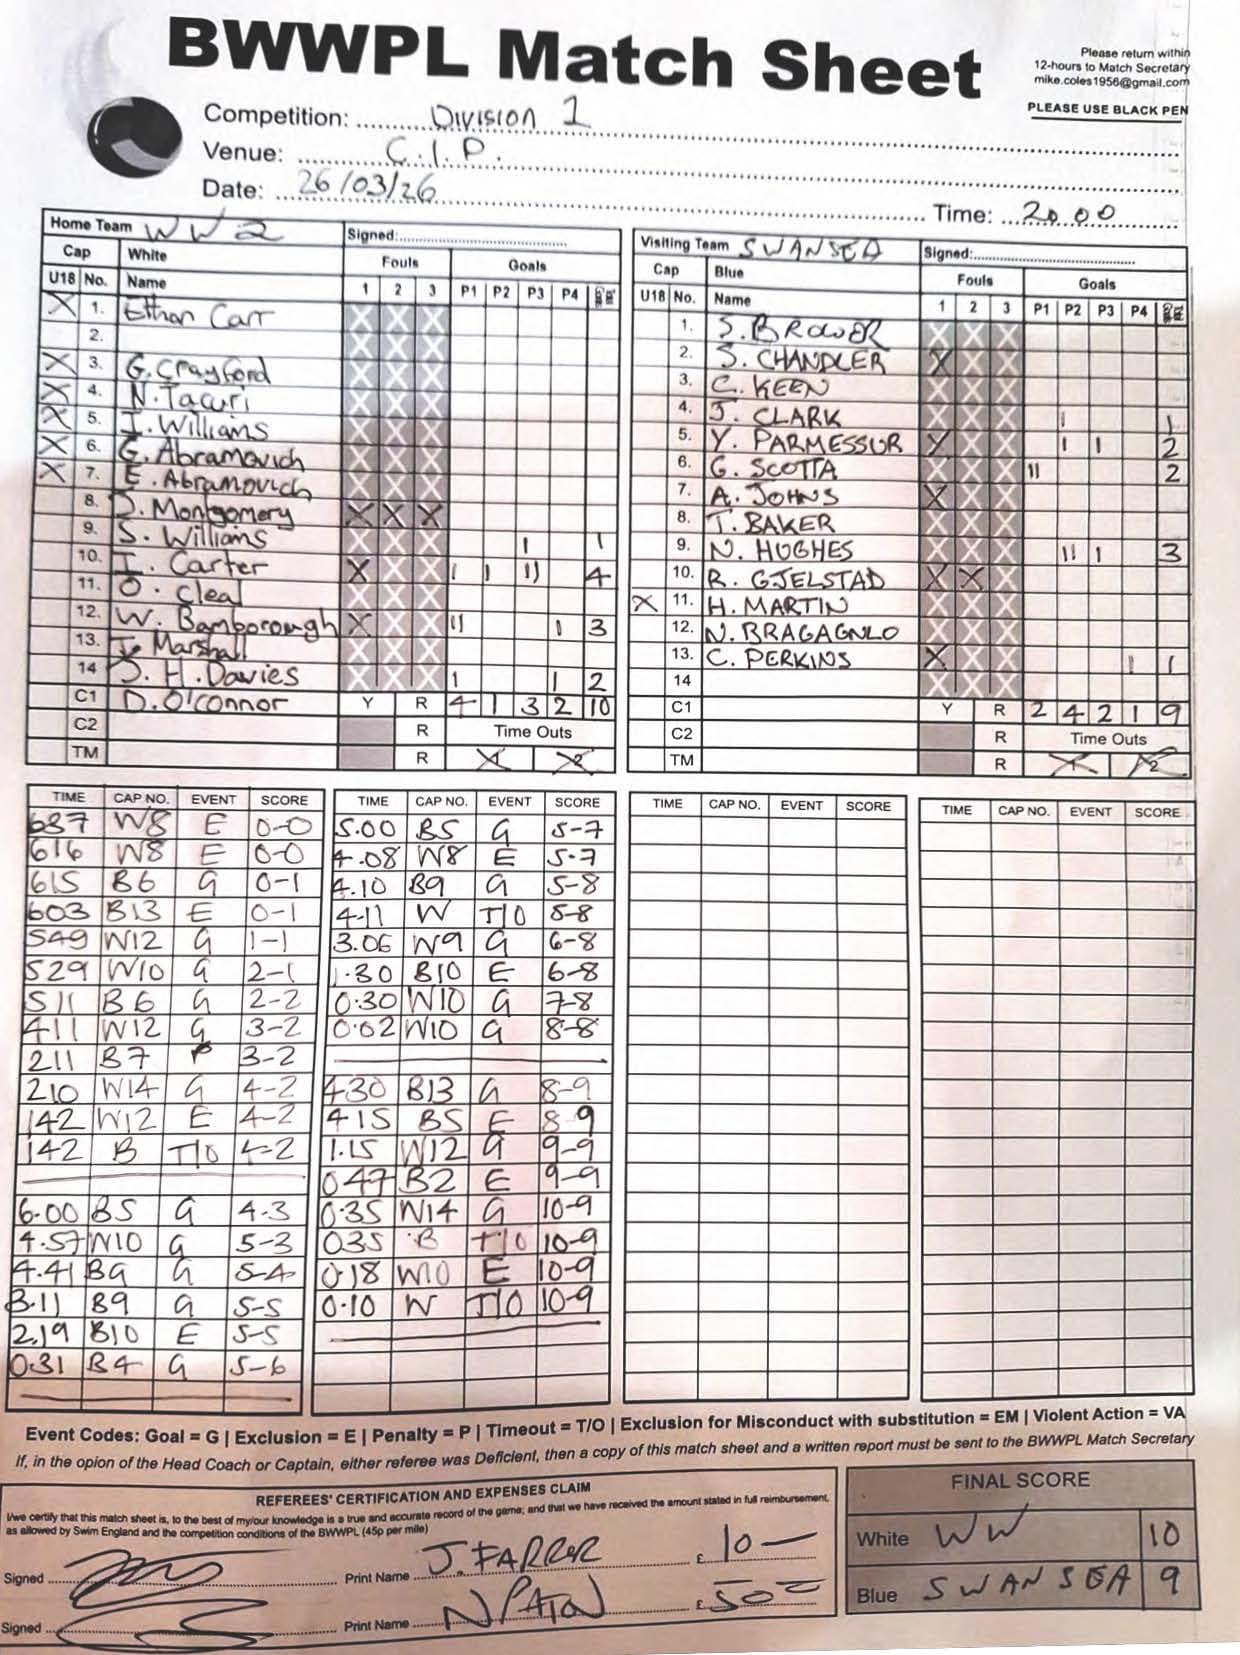 BWWPL Match Sheet
Please return within
12-hours to Match Secretary
mike.coles1956@gmail.com
PLEASE USE BLACK PEN
Competition: Division 1
Venue: C.I.P.
Date: 26/03/26 Time: 20.00
Home Team WW2 Signed:
Cap White Fouls Goals
U18 No. Name 1 2 3 P1 P2 P3 P4
X 1. Ethan Carr
2.
X 3. G. Crayford
X 4. N. Tacuri
X 5. I. Williams
X 6. G. Abramovich
X 7. E. Abramovich
8. D. Montgomery X X X
9. S. Williams I 1
10. I. Carter X I I III 4
11. O. Cleal
12. W. Bamborough X II I 3
13. Marshall
14 D. H. Davies 1 1 2
C1 D. O'Connor Y R 4 1 3 2 10
C2 R Time Outs
TM R 1 2
Visiting Team SWANSEA Signed:
Cap Blue Fouls Goals
U18 No. Name 1 2 3 P1 P2 P3 P4
1. S. BROWER
2. S. CHANDLER X
3. C. KEEN
4. J. CLARK I 1
5. Y. PARMESSUR X I I 2
6. G. SCOTTA II 2
7. A. JOHNS X
8. T. BAKER
9. N. HUGHES II I 3
10. R. GJELSTAD X X
X 11. H. MARTIN
12. N. BRAGAGNLO
13. C. PERKINS X I 1
14
C1 Y R 2 4 2 1 9
C2 R Time Outs
TM R 1 2
TIME CAP NO. EVENT SCORE
637 W8 E 0-0
616 W8 E 0-0
615 B6 G 0-1
603 B13 E 0-1
549 W12 G 1-1
529 W10 G 2-1
511 B6 G 2-2
411 W12 G 3-2
211 B7 P 3-2
210 W14 G 4-2
142 W12 E 4-2
142 B T/O 4-2
6.00 B5 G 4-3
4.57 W10 G 5-3
4.41 B9 G 5-4
3.11 B9 G 5-5
2.19 B10 E 5-5
0.31 B4 G 5-6
TIME CAP NO. EVENT SCORE
5.00 B5 G 5-7
4.08 W8 E 5-7
4.10 B9 G 5-8
4.11 W T/O 5-8
3.06 W9 G 6-8
1.30 B10 E 6-8
0.30 W10 G 7-8
0.02 W10 G 8-8
430 B13 G 8-9
415 B5 E 8-9
1.15 W12 G 9-9
047 B2 E 9-9
0.35 W14 G 10-9
035 B T/O 10-9
0.18 W10 E 10-9
0.10 W T/O 10-9
TIME CAP NO. EVENT SCORE
TIME CAP NO. EVENT SCORE
Event Codes: Goal = G | Exclusion = E | Penalty = P | Timeout = T/O | Exclusion for Misconduct with substitution = EM | Violent Action = VA
If, in the opion of the Head Coach or Captain, either referee was Deficient, then a copy of this match sheet and a written report must be sent to the BWWPL Match Secretary
REFEREES' CERTIFICATION AND EXPENSES CLAIM
I/we certify that this match sheet is, to the best of my/our knowledge is a true and accurate record of the game; and that we have received the amount stated in full reimbursement,
as allowed by Swim England and the competition conditions of the BWWPL (45p per mile)
Signed Print Name J. FARRER £ 10 —
Signed Print Name N PATON £ 50
FINAL SCORE
White WW 10
Blue SWANSEA 9